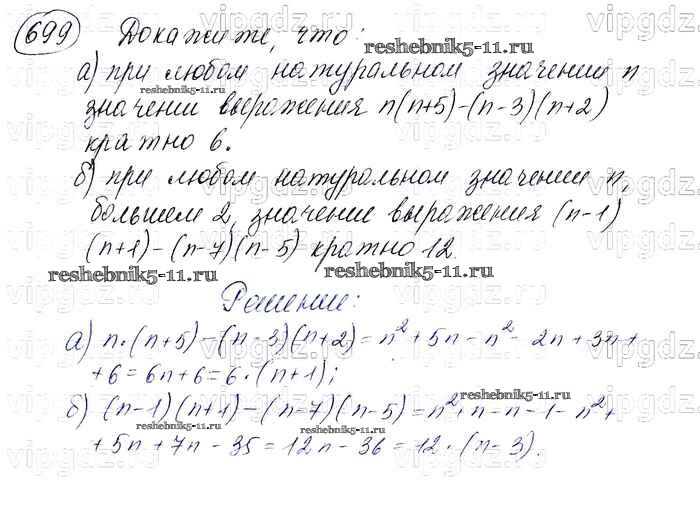 699 Докажите, что:
reshebnik5-11.ru
а) при любом натуральном значении n
reshebnik5-11.ru
значении выражения n(n+5)-(n-3)(n+2)
кратно 6.
б) при любом натуральном значении n,
большем 2, значение выражения (n-1)
(n+1)-(n-7)(n-5) кратно 12.
reshebnik5-11.ru reshebnik5-11.ru
Решение:
а) n·(n+5)-(n-3)(n+2)=n²+5n-n²-2n+3n+
+6=6n+6=6·(n+1);
reshebnik5-11.ru
б) (n-1)(n+1)-(n-7)(n-5)=n²+n-n-1-n²+
reshebnik5-11.ru reshebnik5-11.ru
+5n+7n-35=12n-36=12·(n-3).
vipgdz